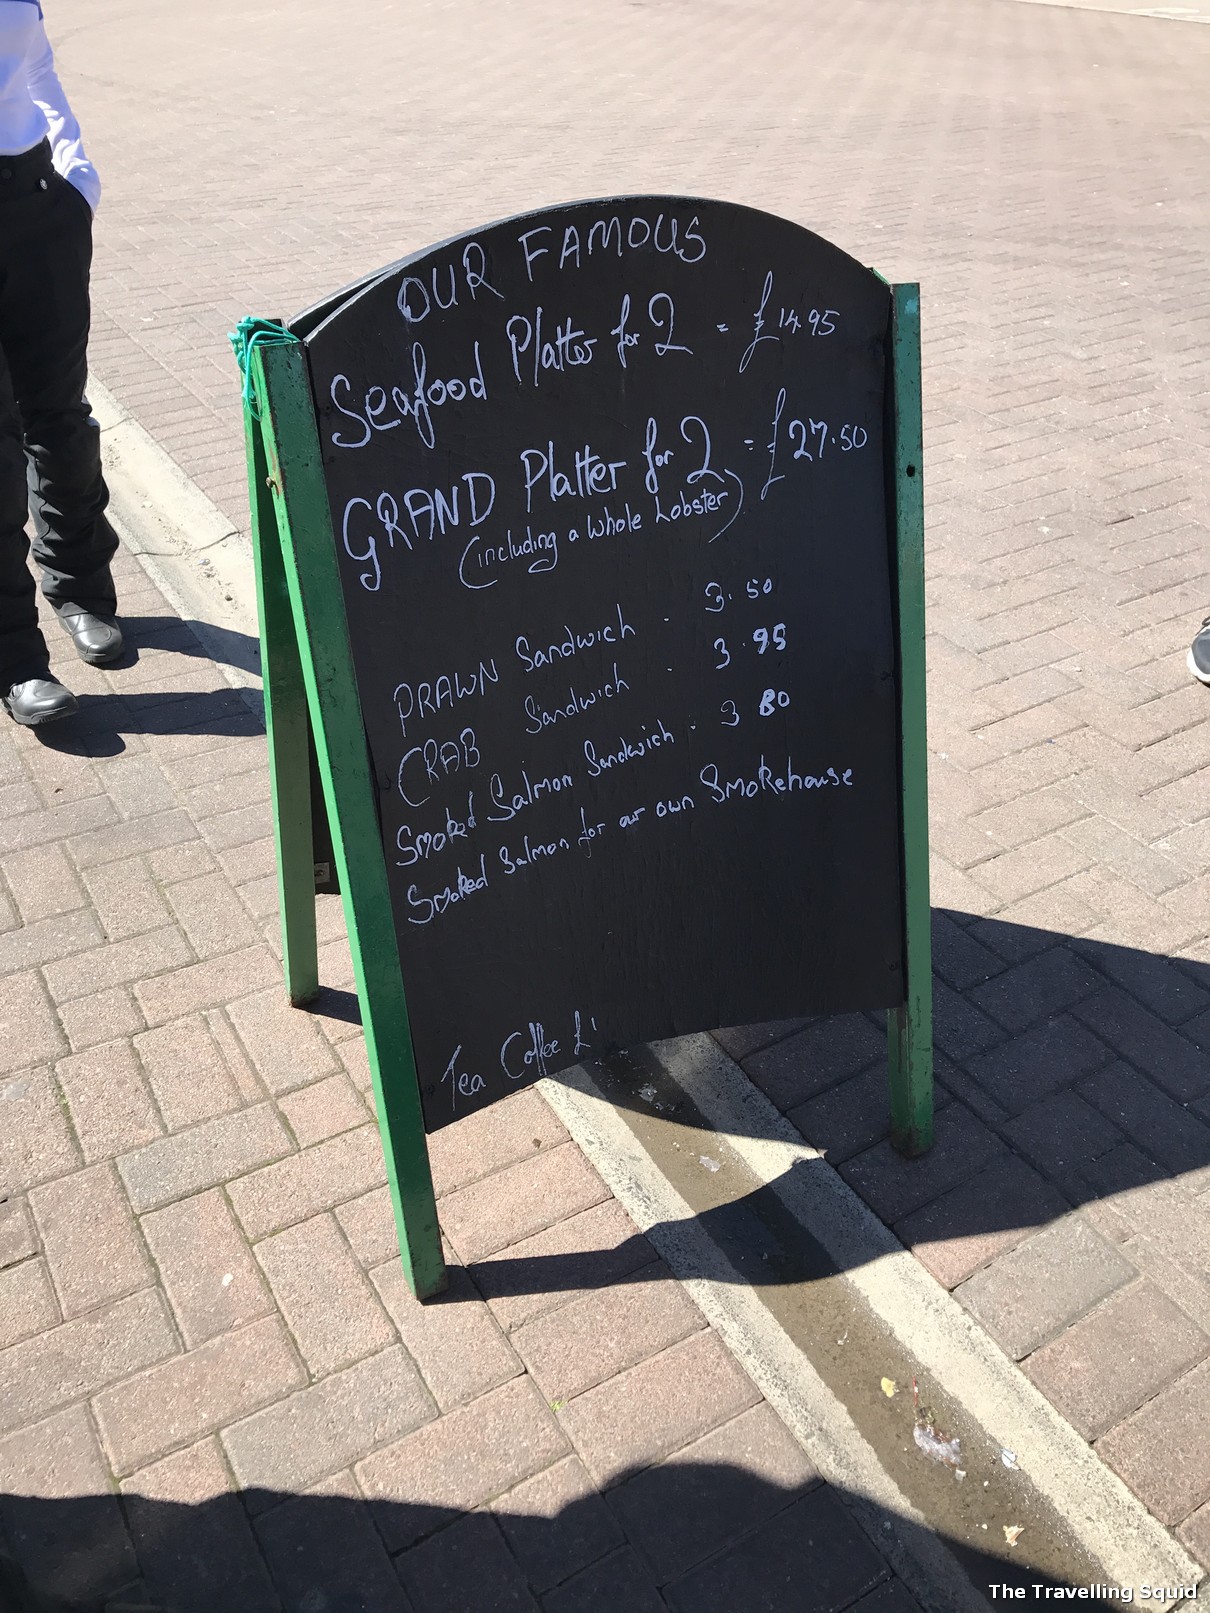 OUR FAMOUS
Seafood Platter for 2 = £14.95
GRAND Platter for 2 = £27.50
(including a whole Lobster)
PRAWN Sandwich - 3.50
CRAB Sandwich - 3.95
Smoked Salmon Sandwich - 3 80
Smoked Salmon for our own Smokehouse
Tea Coffee £1
The Travelling Squid